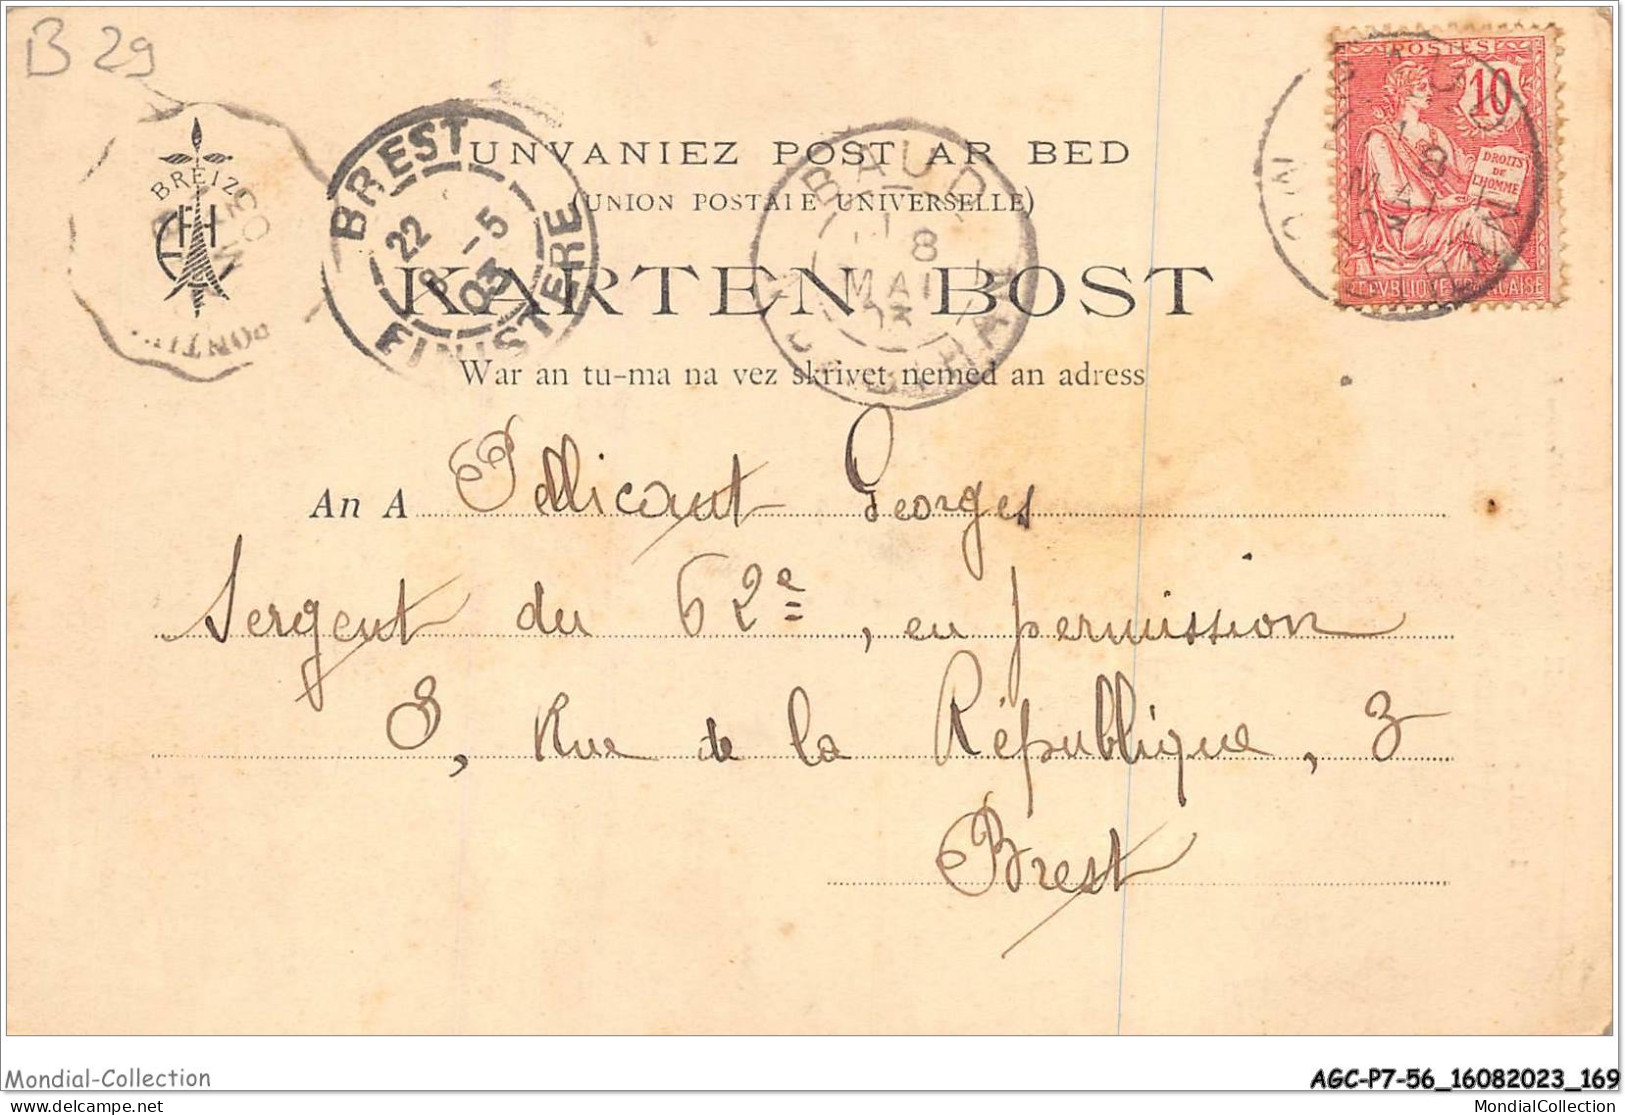 B 29
POSTES
10
DROITS
DE
L'HOMME
REPVBLIQUE FRANÇAISE
BREIZ
BREST
22
8 -5
03
FINISTERE
BAUD
8
MAI
03
MORBIHAN
UNVANIEZ POST AR BED
(UNION POSTALE UNIVERSELLE)
KARTEN BOST
War an tu-ma na vez skrivet nemed an adress
An A Pellicant Georges
Sergent du 62e, en permission
3, Rue de la République, 3
Brest
Mondial-Collection
AGC-P7-56_16082023_169
www.delcampe.net
MondialCollection